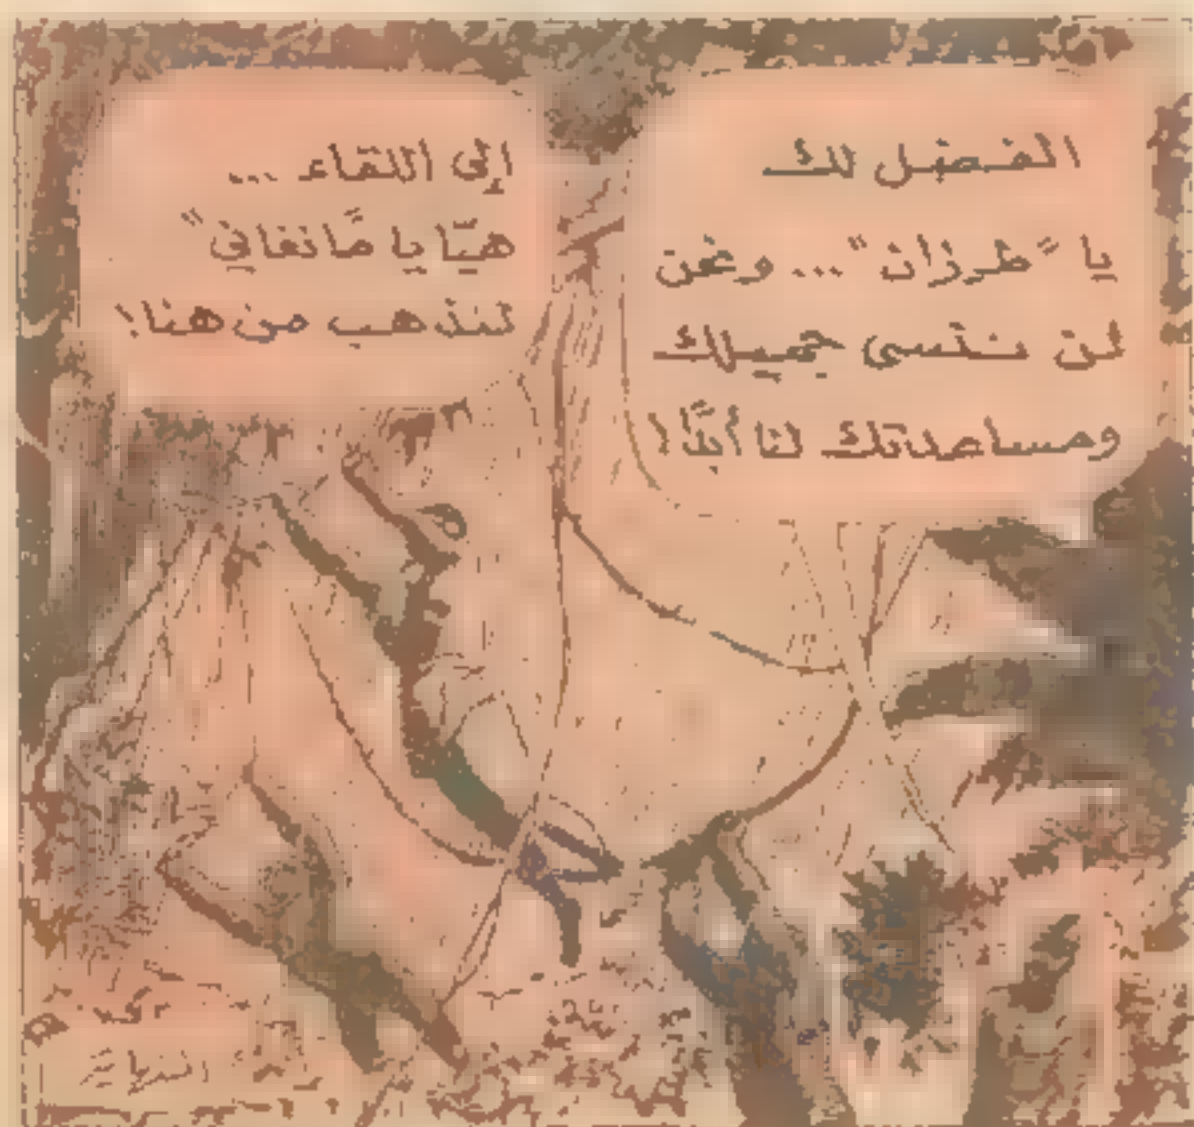 الفضل لك
يا "طرزان"... ونحن
لن ننسى جميلك
ومساعدتك لنا أبدًا!
إلى اللقاء ...
هيّا يا مانغاني"
لنذهب من هنا!